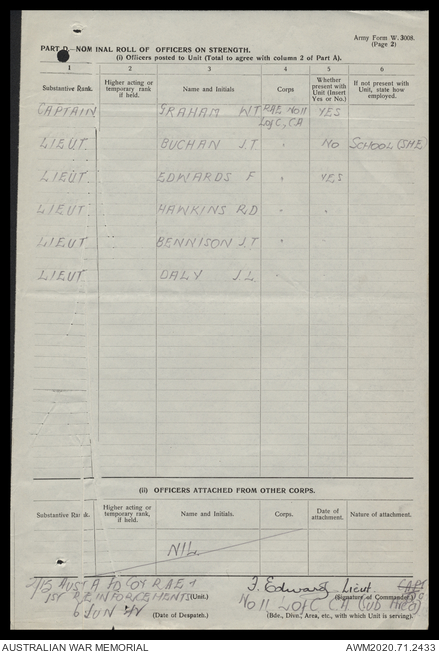 Army Form W. 3008.
(Page 2)
PART D.—NOMINAL ROLL OF OFFICERS ON STRENGTH.
(i) Officers posted to Unit (Total to agree with column 2 of Part A).
1 2 3 4 5 6
Substantive Rank. Higher acting or temporary rank if held. Name and Initials Corps Whether present with Unit (Insert Yes or No.) If not present with Unit, state how employed.
CAPTAIN GRAHAM W T RAE No 11 YES
L of C, CA
LIEUT. BUCHAN J.T " NO SCHOOL (SME)
LIEUT. EDWARDS F " YES
LIEUT. HAWKINS R.D " "
LIEUT. BENNISON J.T "
LIEUT. DALY J L. "
(ii) OFFICERS ATTACHED FROM OTHER CORPS.
Substantive Rank. Higher acting or temporary rank if held. Name and Initials. Corps. Date of attachment. Nature of attachment.
NIL.
2/15 AUST A FD COY R.A.E. + F. Edwards Lieut
1ST REINFORCEMENTS (Unit.) (Signature of Commander)
No 11 L of C CA (SUB AREA)
6 JUN (Date of Despatch.) (Bde., Div., Area, etc., with which Unit is serving).
AUSTRALIAN WAR MEMORIAL AWM2020.71.2433